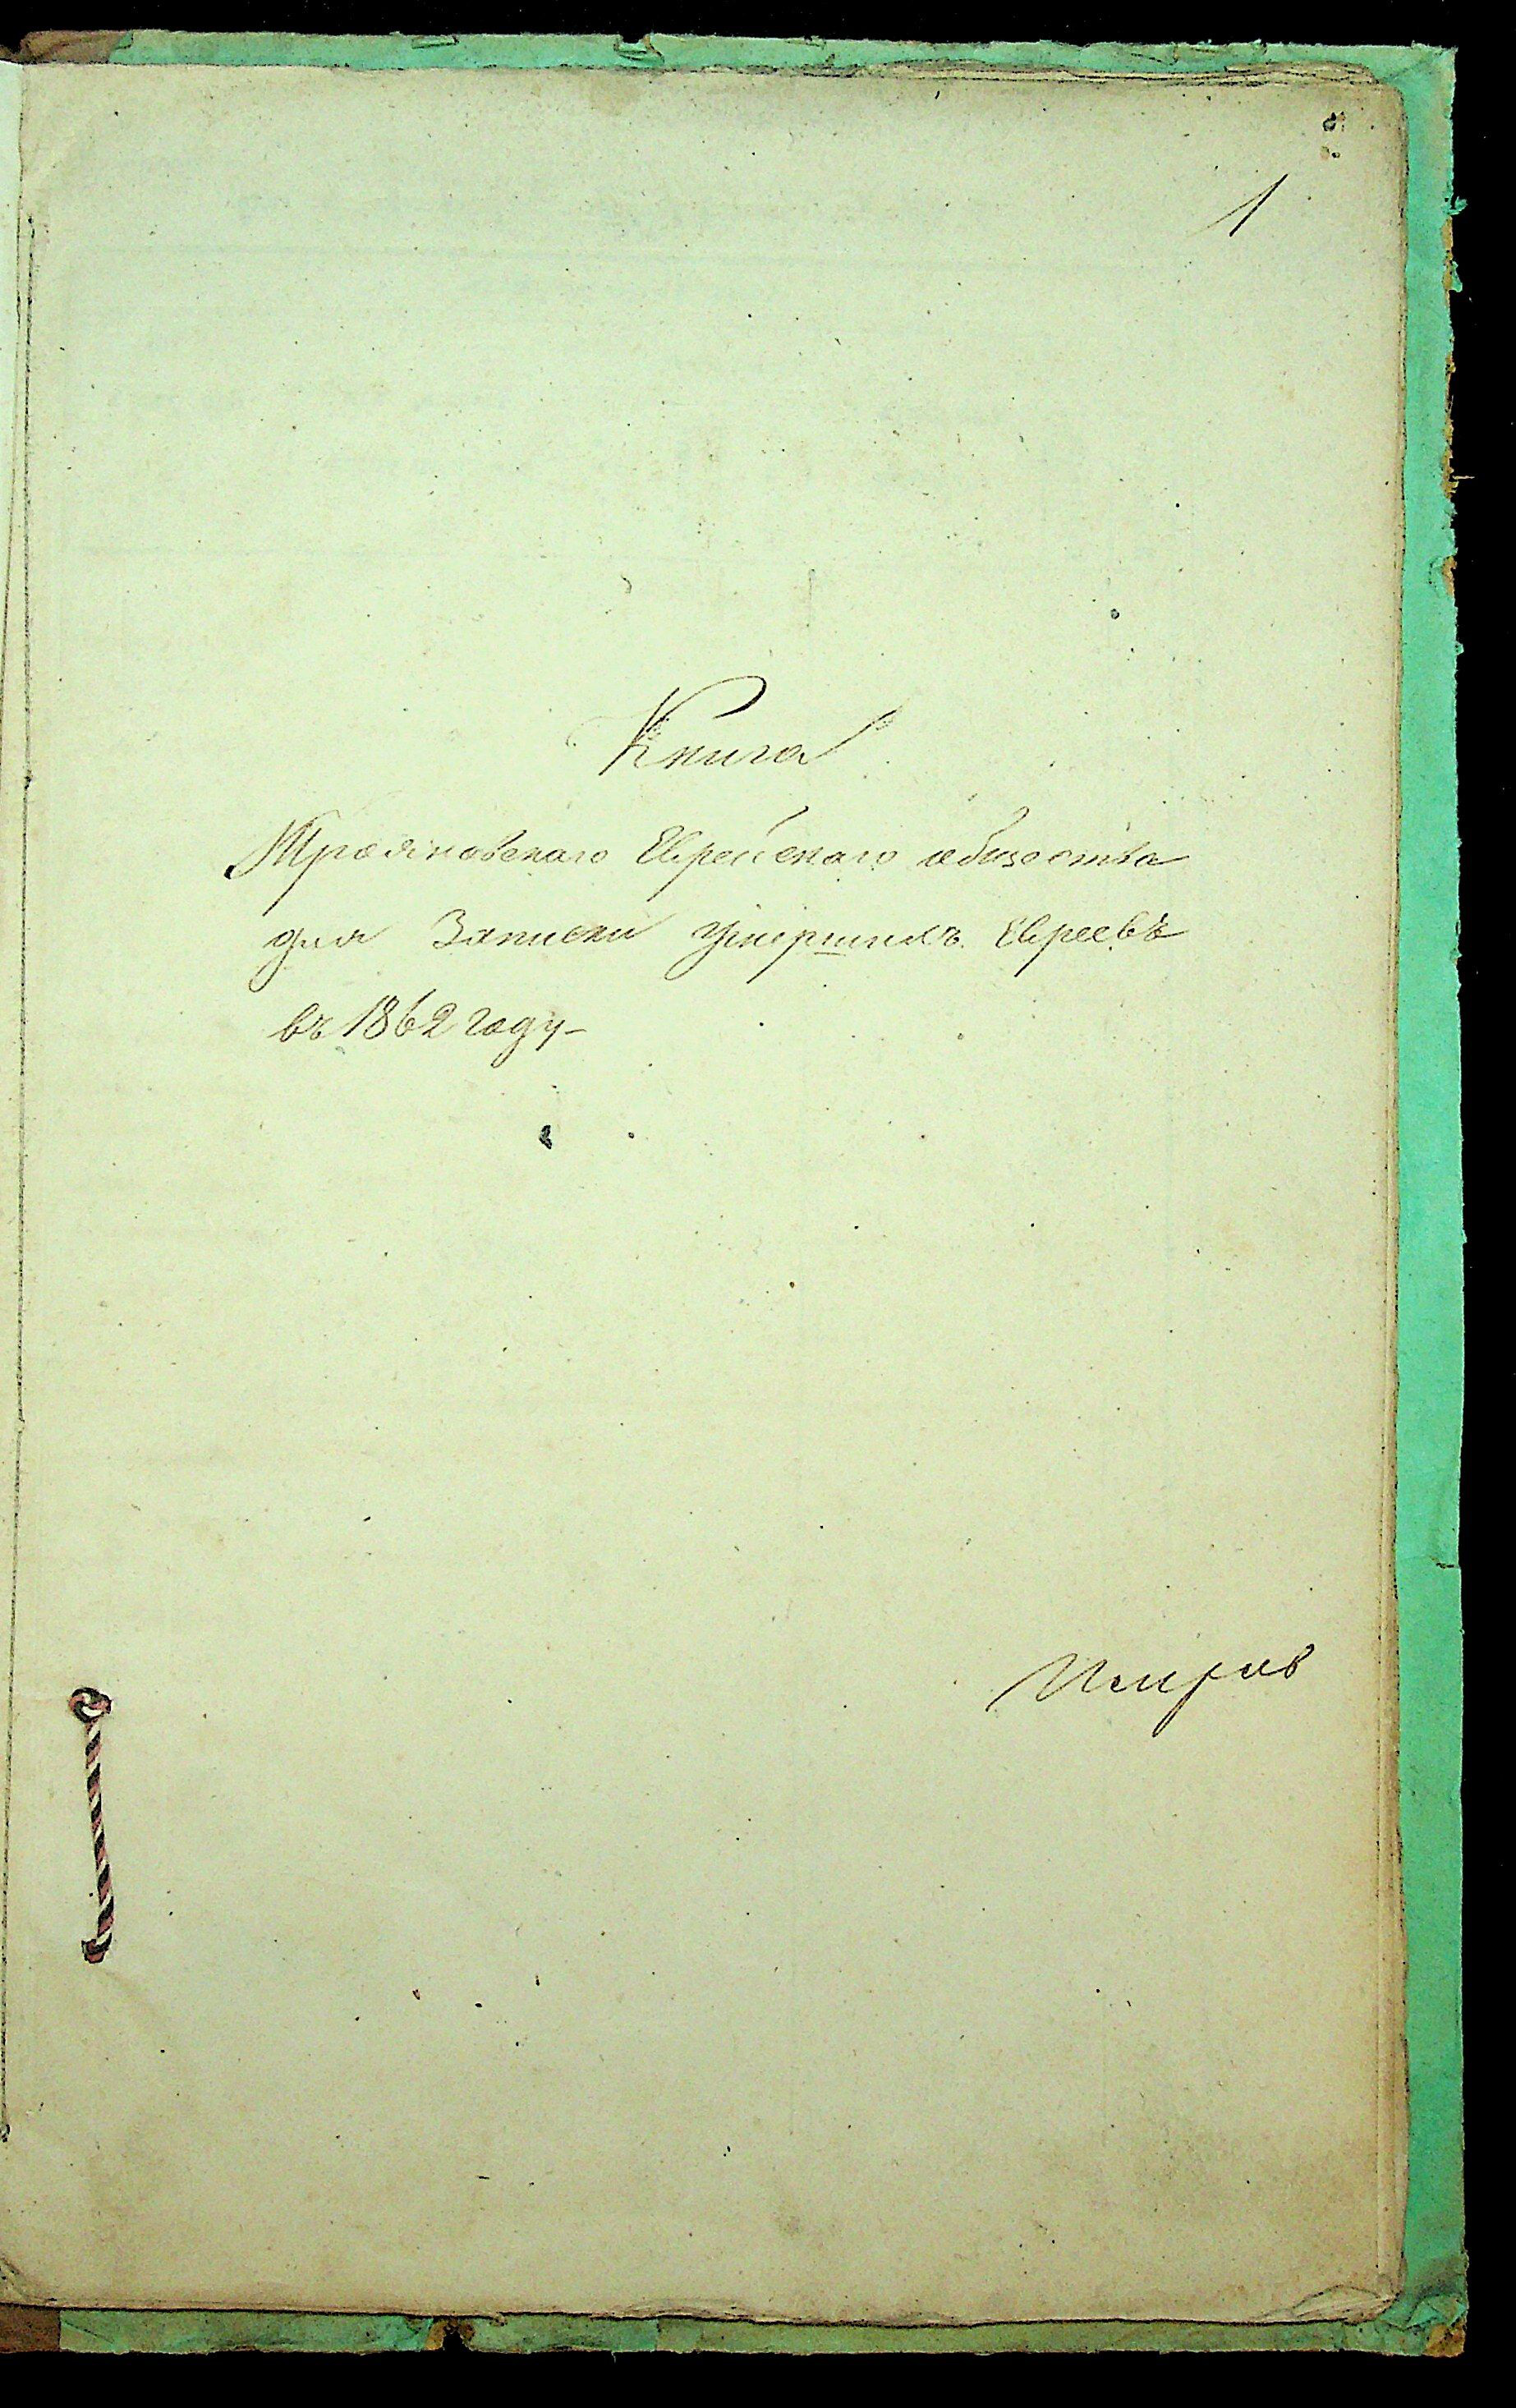 1
Книга
Трояновскаго Еврейскаго общества
для Записки умершихъ Евреевъ
въ 1862 году